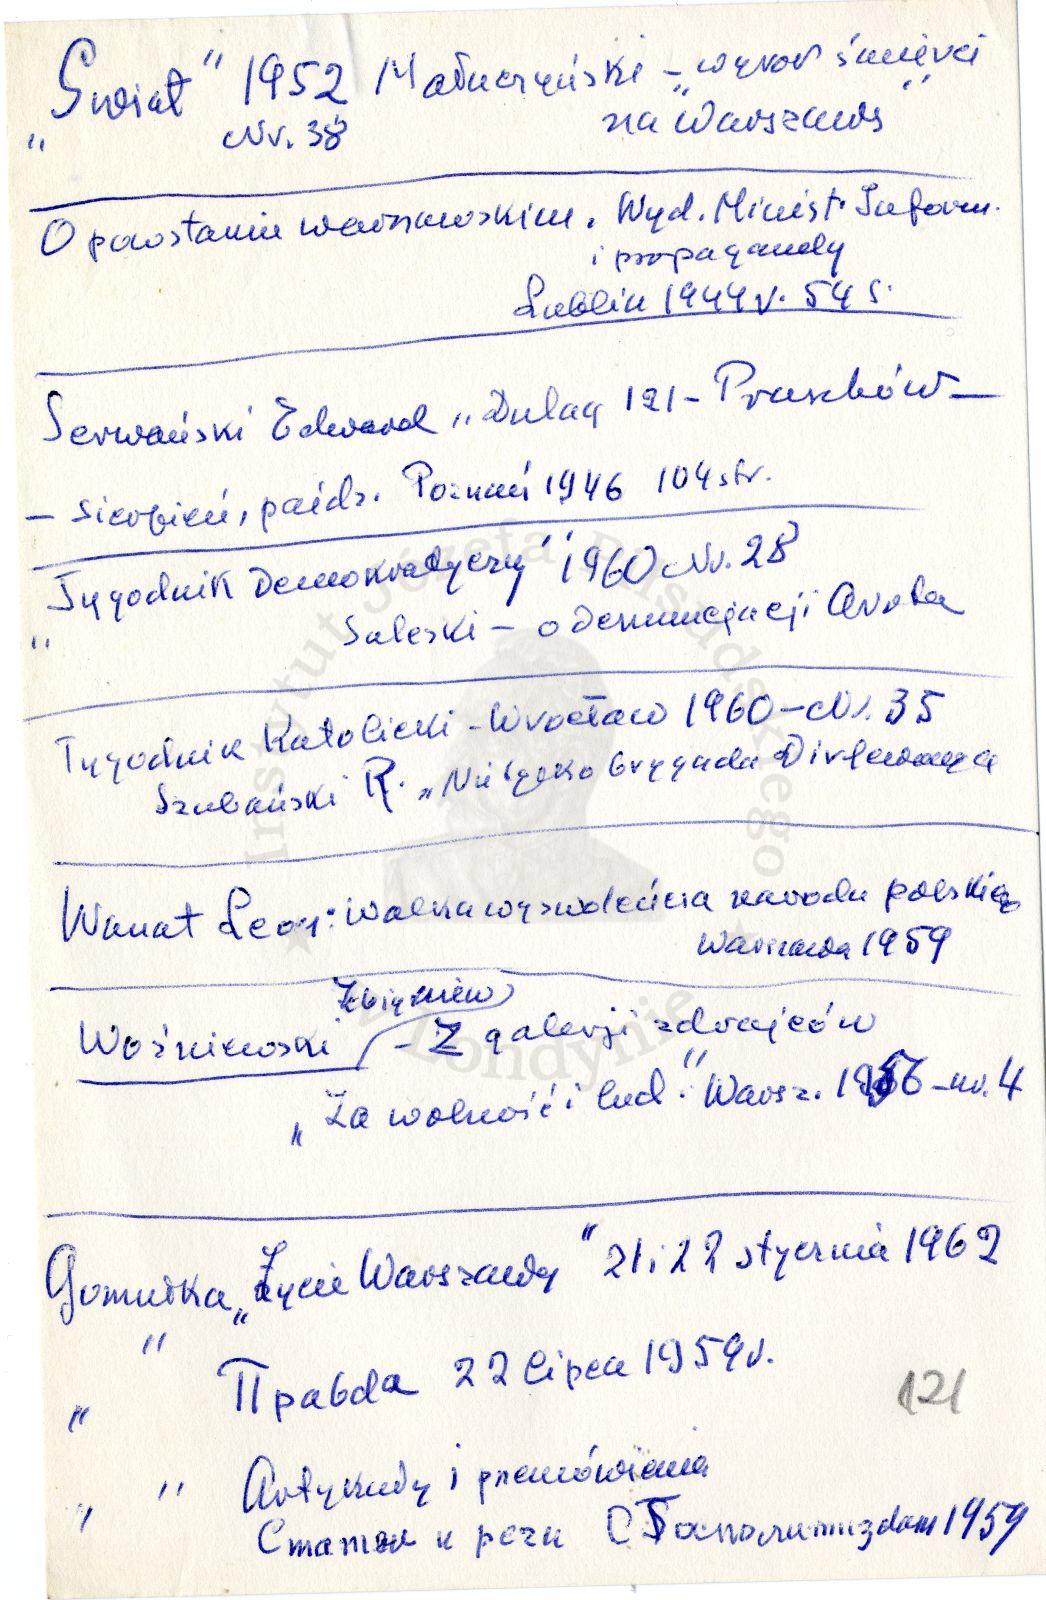 „Świat" 1952 Małcużyński – „wyrok śmierci
Nr. 38 na Warszawę"
O powstaniu warszawskim. Wyd. Minist. Inform.
i propagandy
Lublin 1944 r. 54 s.
Serwański Edward „Dulag 121 – Pruszków –
– sierpień, paźdz. Poznań 1946 104 str.
„Tygodnik Demokratyczny" 1960 Nr. 28
Saleski – o denuncjacji
Tygodnik Katolicki – Wrocław 1960 – Nr. 35
Szubański R. „Nie tylko brygada Dirlewangera
Wanat Leon: Walka wyzwoleńcza narodu polskiego
Warszawa 1959
Zbigniew
Woźniewski – Z galerji zdrajców
„Za wolność i lud." Warsz. 1956 – nr. 4
Gomułka „Życie Warszawy" 21 i 22 stycznia 1962
" Правda 22 lipca 1959 r.
121
" " Artykuły i przemówienia
" Статьи и речи Госполитиздат 1959
Instytut Józefa Piłsudskiego
w Londynie